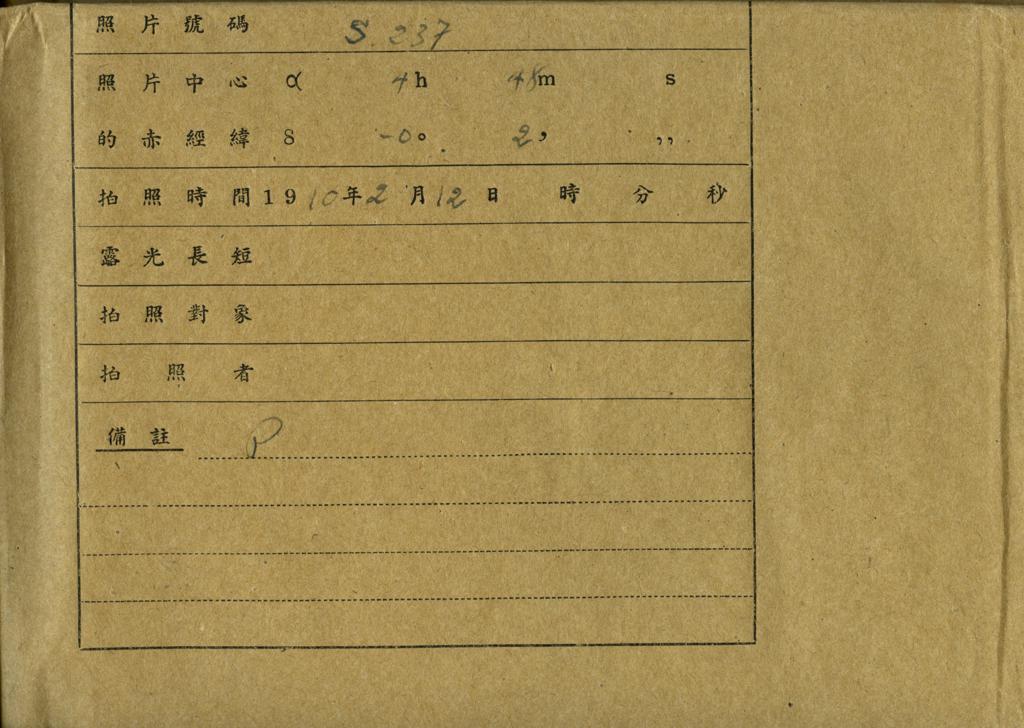 照片號碼 S. 237
照片中心 α 4h 48m s
的赤經緯 δ -0° 2′ ″
拍照時間1910年2月12日 時 分 秒
露光長短
拍照對象
拍照者
備註 P